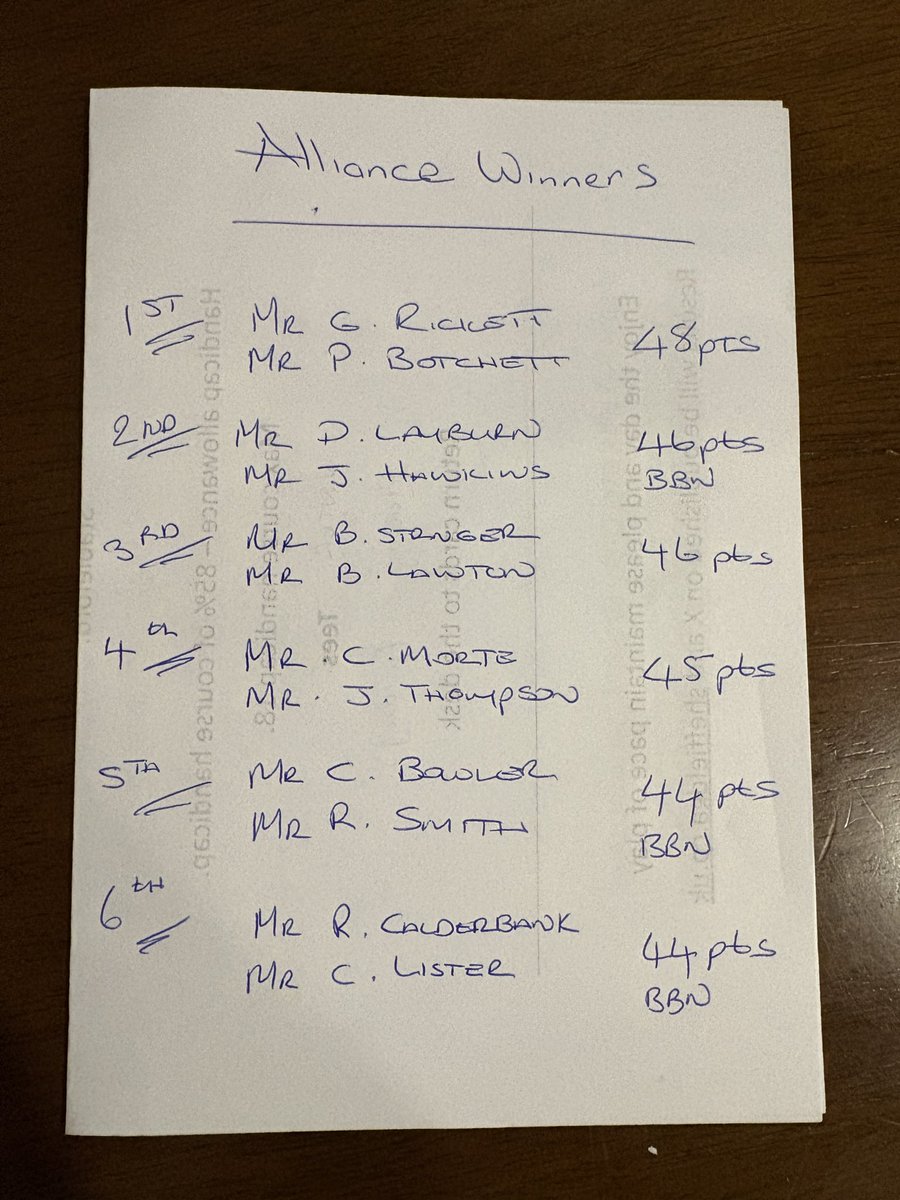 Alliance Winners
1ST MR G. RICKETT
MR P. BOTCHETT 48 PTS
2ND MR D. LAYBURN 46 pts
MR J. HAWKINS BBN
3RD MR B. STRNGER
MR B. LAWTON 46 pts
4th MR. C. MORTE
MR. J. THOMPSON 45 pts
5TH MR C. BOWLER 44 pts
MR R. SMITH BBN
6tH MR R. CALDERBANK 44 pts
MR C. LISTER BBN